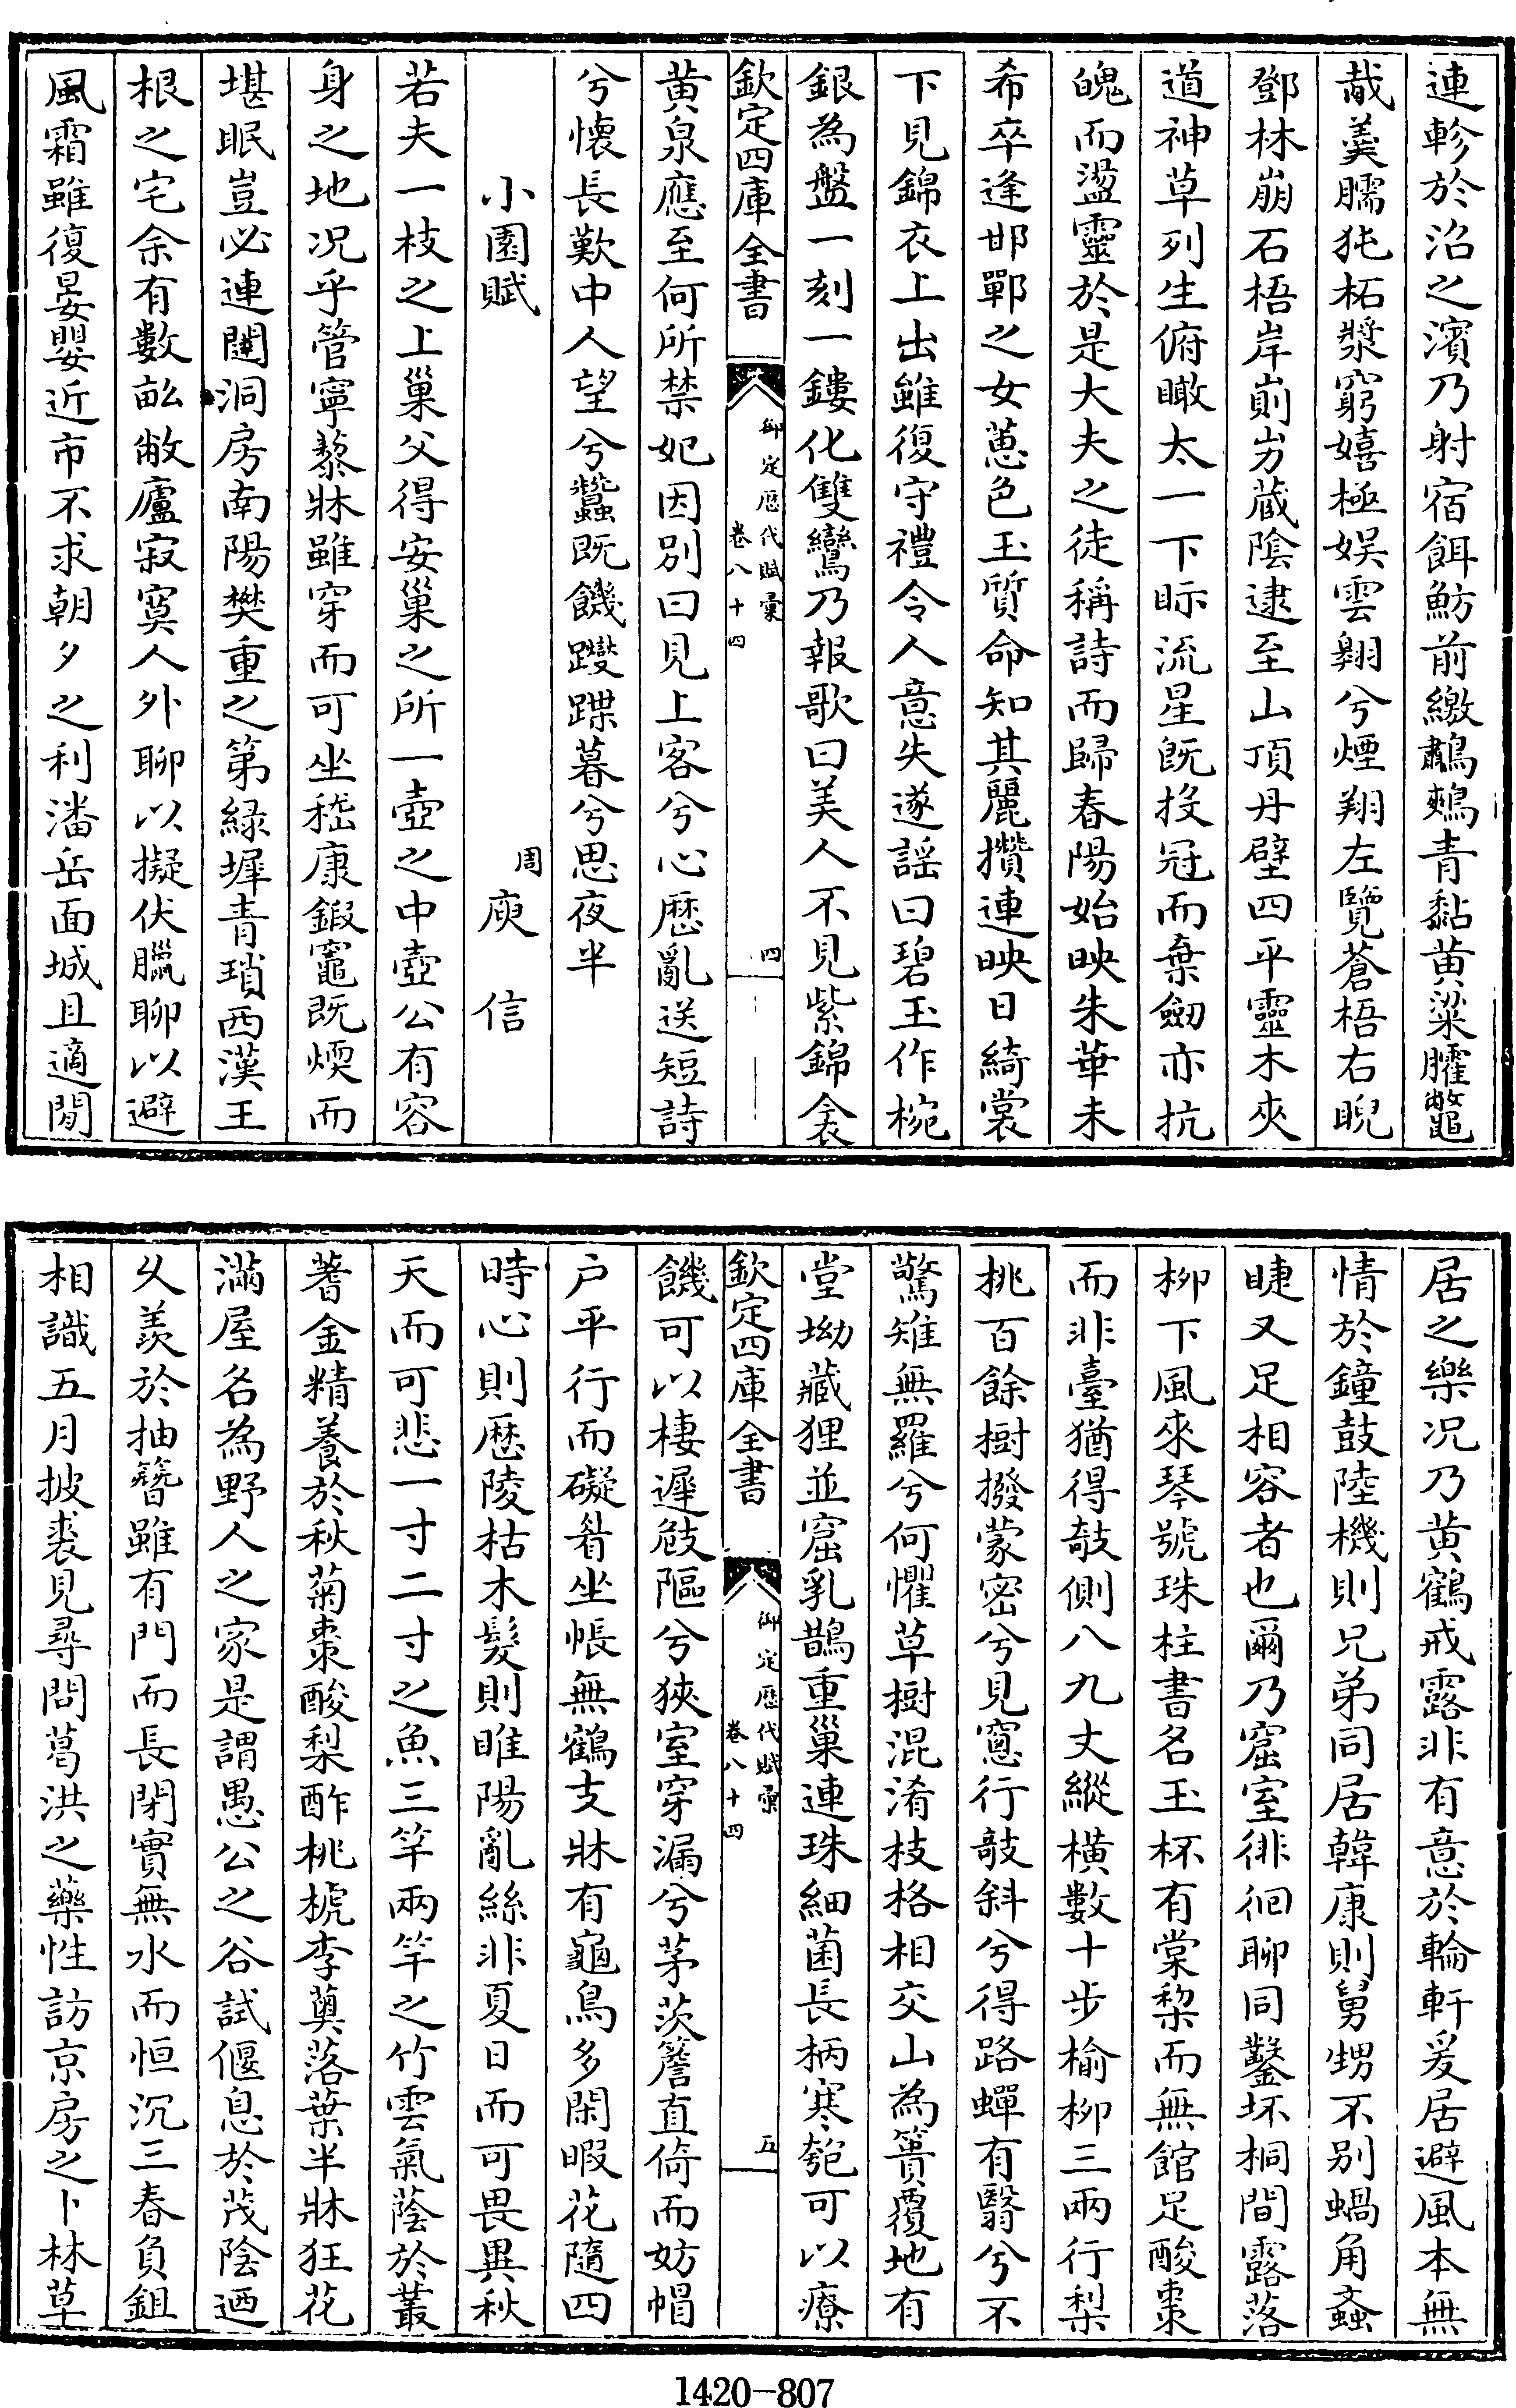 連軫於沿之濱乃射宿餌魴前繳鷫鵊青黏黄粱臛鼈
胾羹臑㹠柘漿窮嬉極娯雲翺兮煙翔左覽蒼梧右睨
鄧林崩石梧岸崱屴蔵隂逮至山頂丹壁四平靈木夾
道神草列生俯瞰太一下眎流星既投冠而棄劒亦抗
魄而盪靈於是大夫之徒稱詩而歸春陽始映朱華未
希卒逢邯鄲之女蔥色玉質命知其麗攢連映日綺裳
下見錦衣上出雖復守禮令人意失遂謡曰碧玉作椀
銀為盤一刻一鏤化雙鸞乃報歌曰美人不見紫錦衾
欽定四庫全書
御定歴代賦彚
卷八十四
四
黄泉應至何所禁妃因别曰見上客兮心歴亂送短詩
兮懐長歎中人望兮蠶既饑躞蹀暮兮思夜半
小園賦
周 庾信
若夫一枝之上巢父得安巢之所一壺之中壺公有容
身之地况乎管寧藜牀雖穿而可坐嵇康鍜竈既煗而
堪眠豈必連闥洞房南陽樊重之第緑墀青瑣西漢王
根之宅余有數畝敝廬寂寞人外聊以擬伏臘聊以避
風霜雖復晏嬰近市不求朝夕之利潘岳面城且適閒
居之樂况乃黄鶴戒露非有意於輪軒爰居避風本無
情於鐘鼓陸機則兄弟同居韓康則舅甥不别蝸角蚉
睫又足相容者也爾乃窟室徘徊聊同鑿坏桐間露落
柳下風來琴號珠柱書名玉杯有棠棃而無館足酸棗
而非臺猶得敧側八九丈縱横數十步榆柳三兩行梨
桃百餘樹撥蒙密兮見窻行敧斜兮得路蟬有翳兮不
驚雉無羅兮何懼草樹混淆枝格相交山為簣覆地有
堂坳藏狸並窟乳鵲重巢連珠細菌長柄寒匏可以療
欽定四庫全書
御定歴代賦彚
卷八十四
五
饑可以棲遲㩻䧢兮狹室穿漏兮茅茨簷直倚而妨帽
户平行而礙眉坐帳無鶴支牀有龜鳥多閑暇花隨四
時心則歴陵枯木髮則睢陽亂絲非夏日而可畏異秋
天而可悲一寸二寸之魚三竿兩竿之竹雲氣蔭於叢
蓍金精養於秋菊棗酸梨酢桃榹李薁落葉半牀狂花
滿屋名為野人之家是謂愚公之谷試偃息於茂陰迺
乆羡於抽簪雖有門而長閉實無水而恒沉三春負鉏
相識五月披裘見尋問葛洪之藥性訪京房之卜林草
1420-807